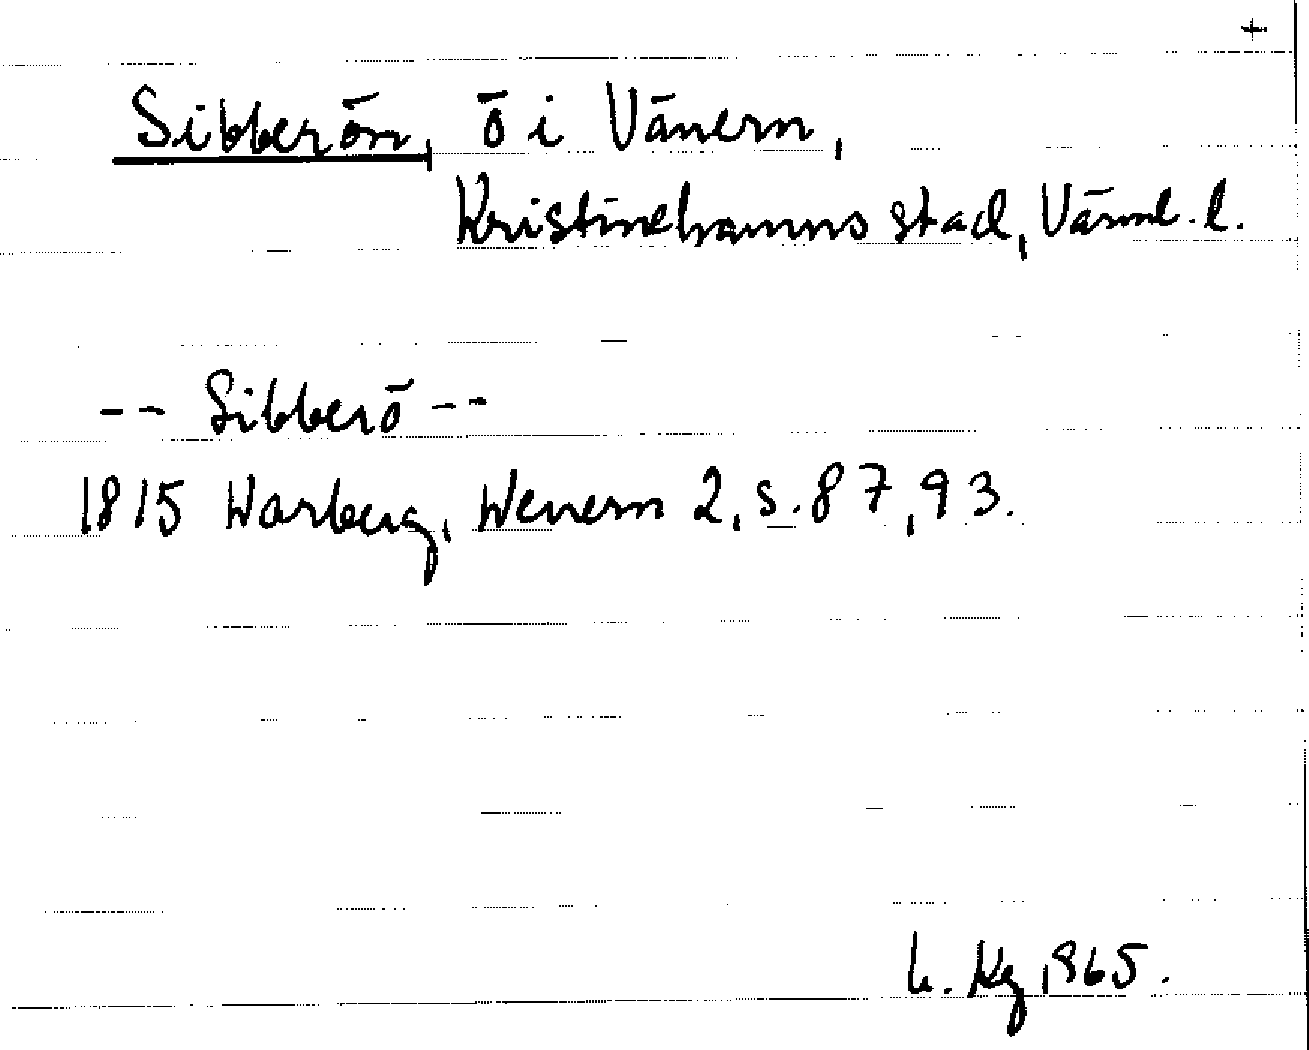 +
Sibberön, ö i Vänern,
Kristinehamns stad, Värml. l.
-- Sibberö --
1815 Warberg, Wenern 2, s. 87, 93.
L. Kg 1965.